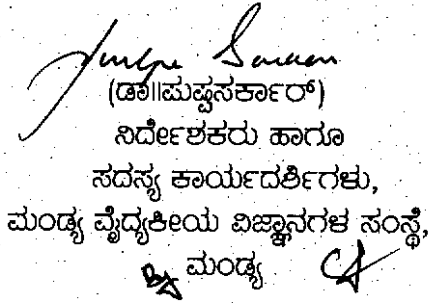 (ಡಾ||ಪುಷ್ಪಸರ್ಕಾರ್)
ನಿರ್ದೇಶಕರು ಹಾಗೂ
ಸದಸ್ಯ ಕಾರ್ಯದರ್ಶಿಗಳು,
ಮಂಡ್ಯ ವೈದ್ಯಕೀಯ ವಿಜ್ಞಾನಗಳ ಸಂಸ್ಥೆ,
ಮಂಡ್ಯ